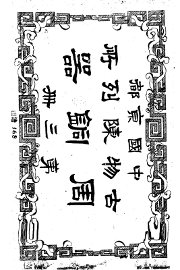 中國首都
古物陳列所
周銅器
第三冊